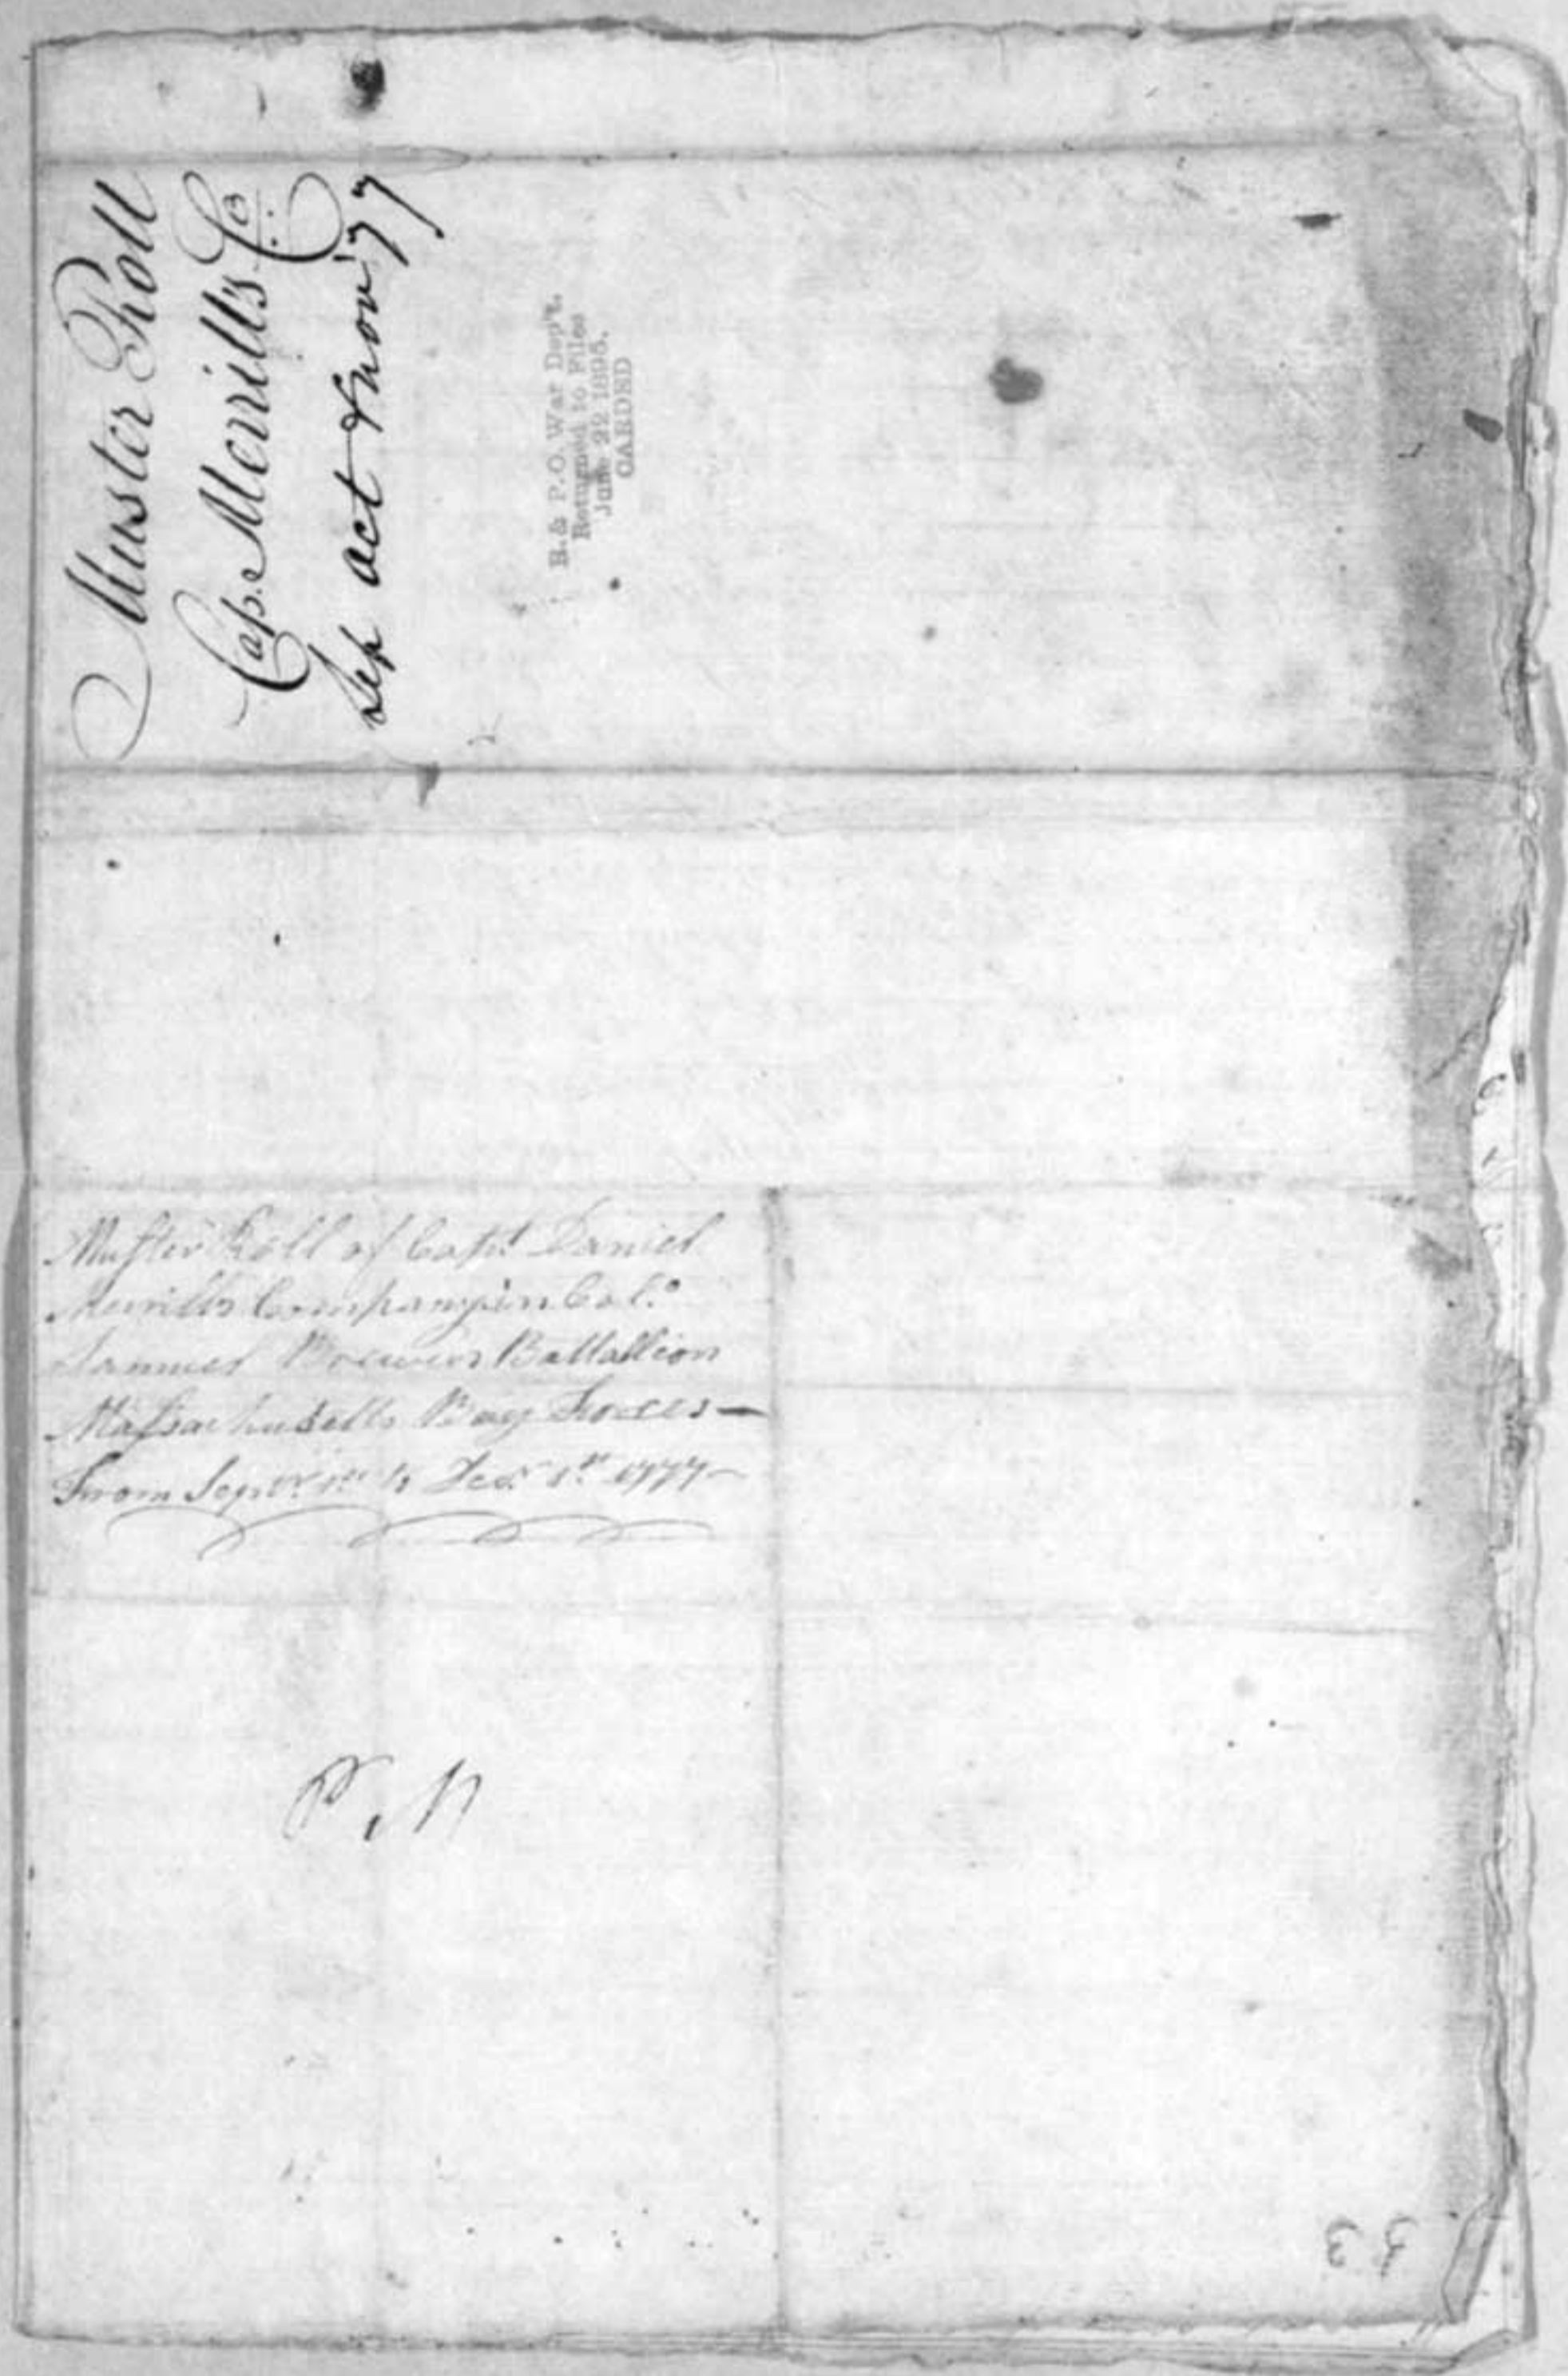 Muster Roll
Cap. Merrill's Co
Sep oct & nov '77
R. & P.O. War Dep't.
Returned to Files
June 22 1895.
CARDED
Muster Roll of Capt. Daniel
Merrills Company in Col.o
Samuel Brewers Battallion
Massachusetts Bay Forces —
From Sepr. 1st to Decr 1st 1777 —
P. M